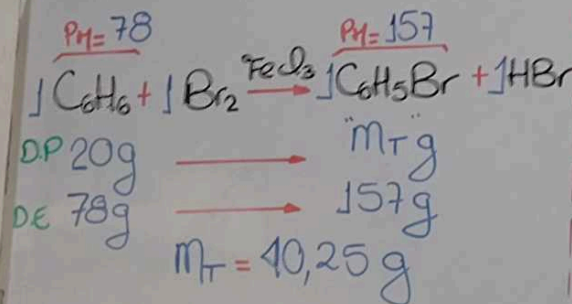 PM= 78 PM= 157
1 C₆H₆ + 1 Br₂ FeCl₃ → 1 C₆H₅Br + 1 HBr
D.P 20g → "mT" g
D.E 78g → 157g
mT = 40,25 g